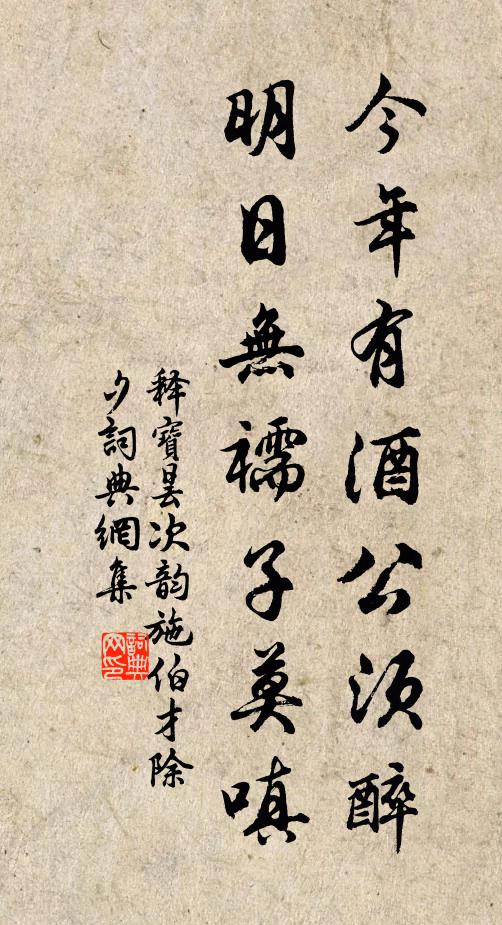 今年有酒公須醉
明日無襦子莫嗔
释寶曇次韵施伯才除
夕詞典網集
詞典
网印